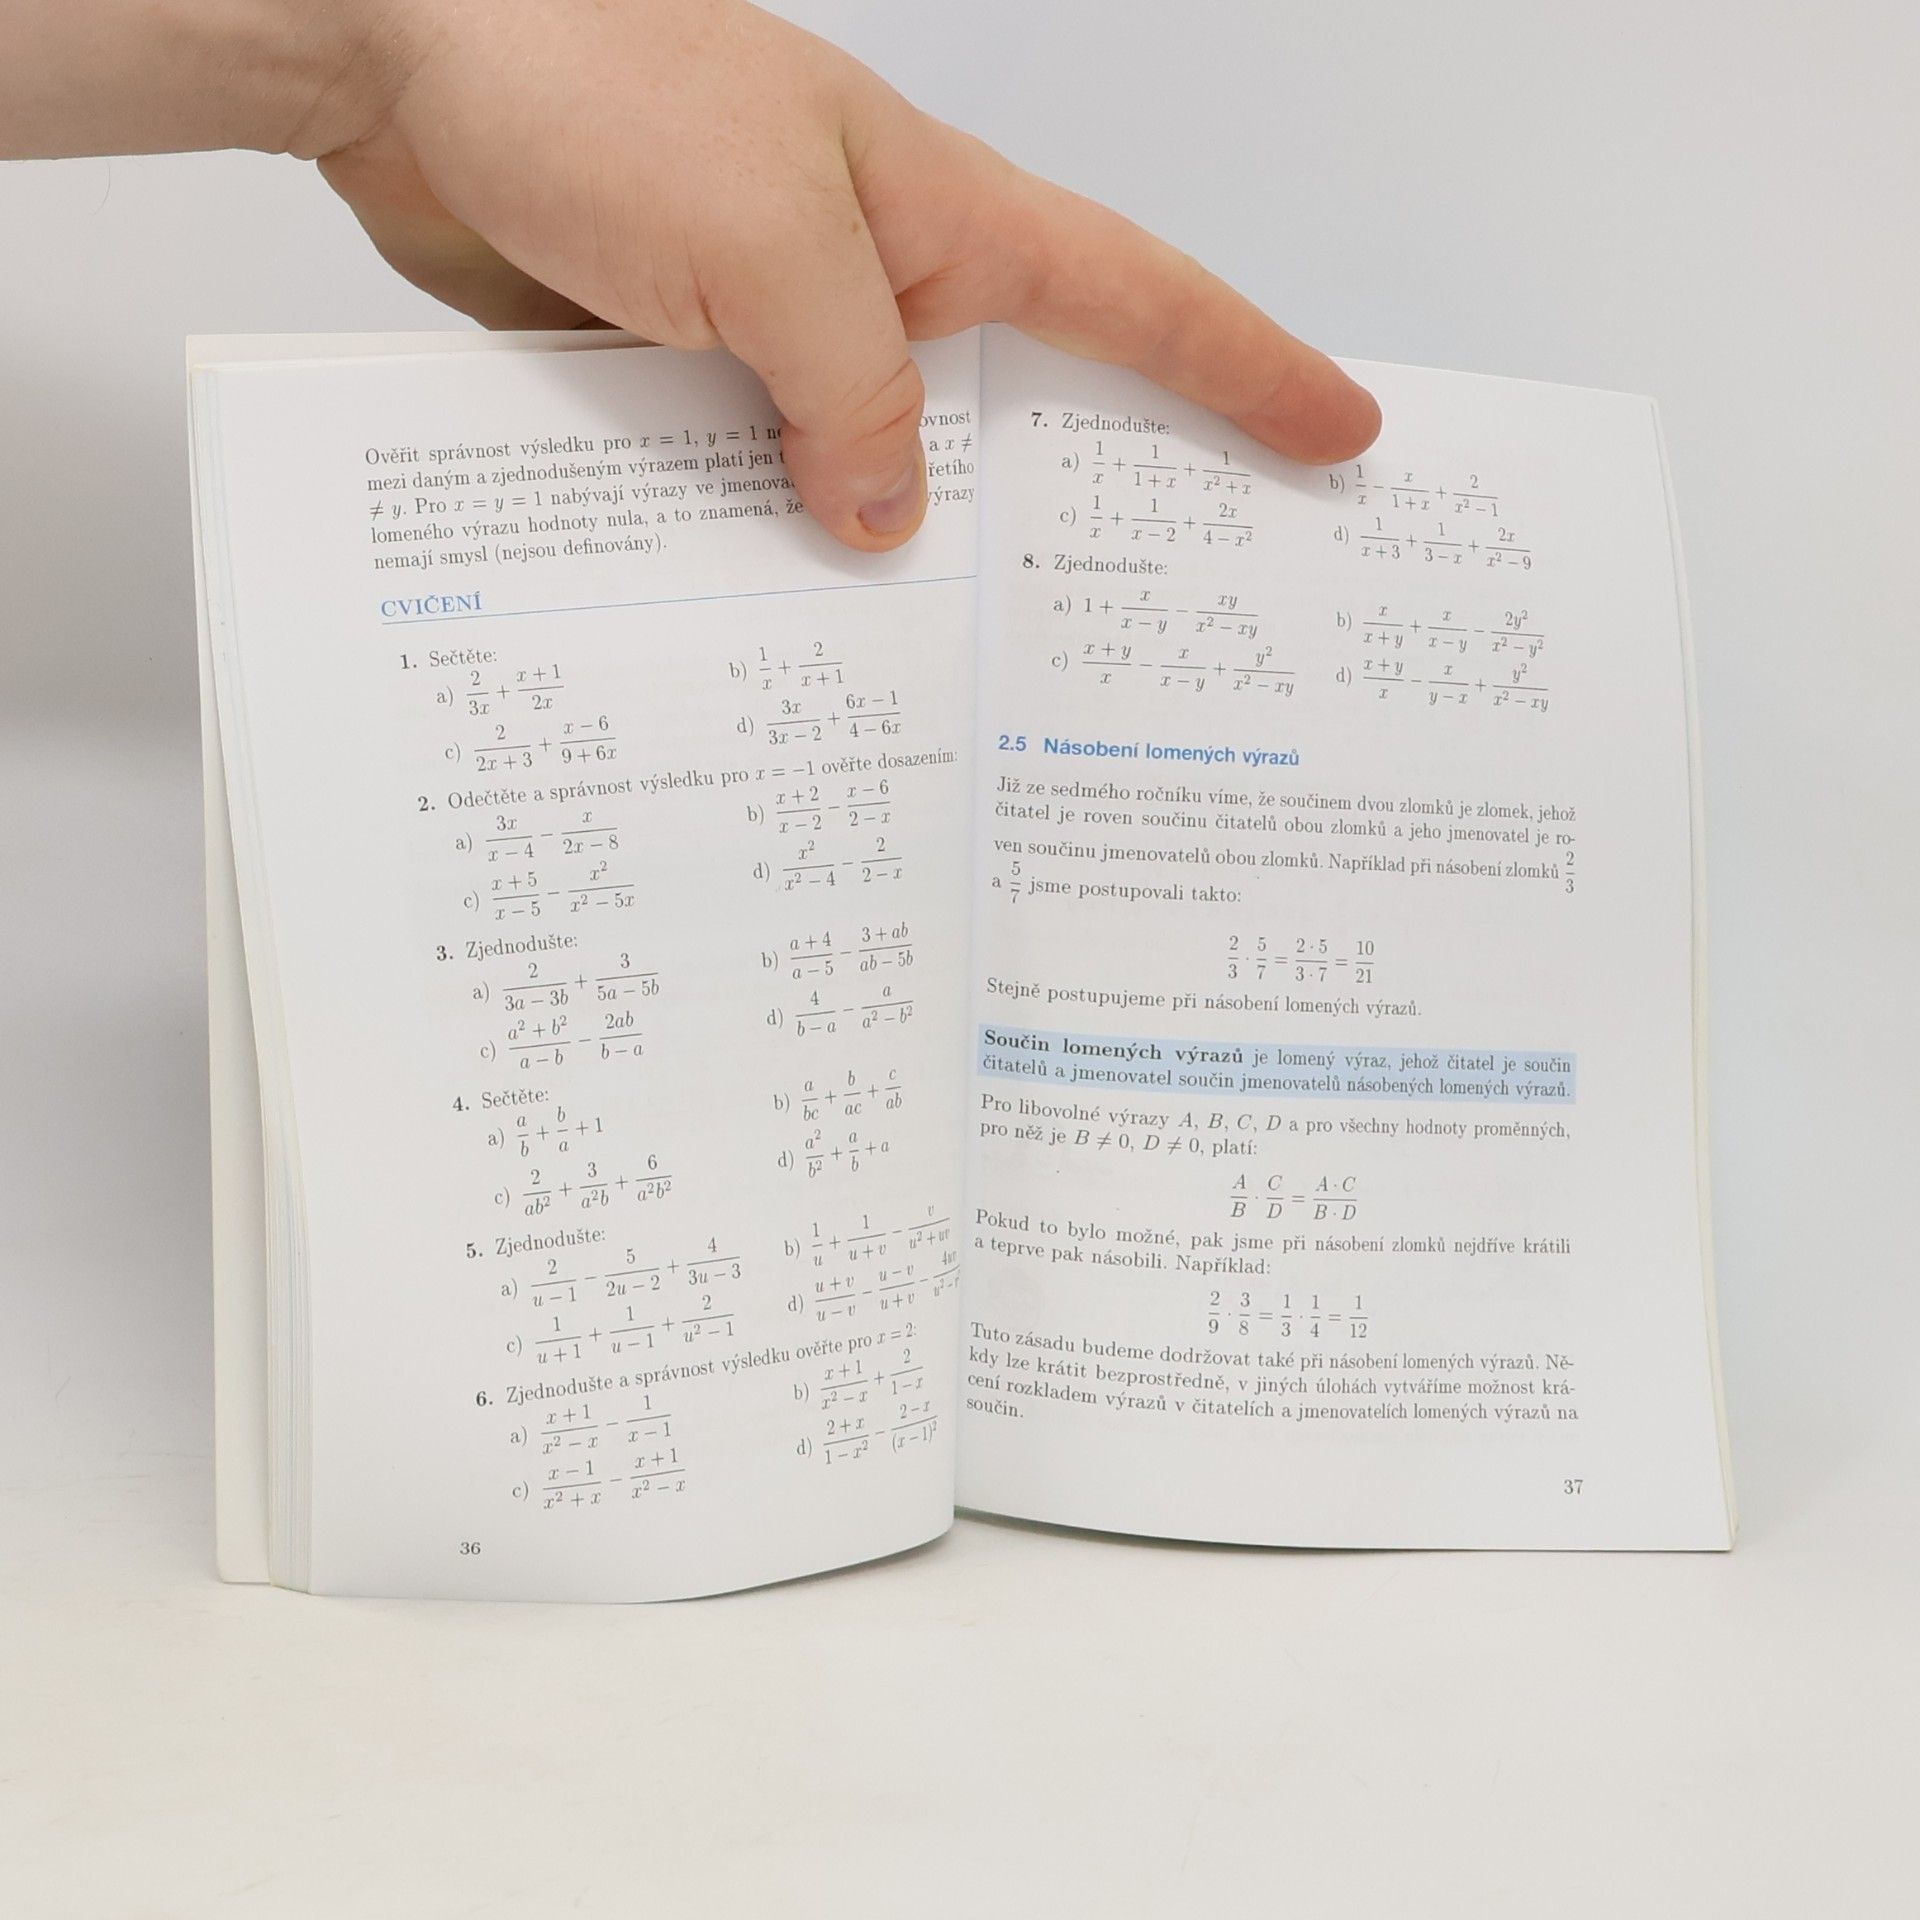 Ověřit správnost výsledku pro x = 1, y = 1 ovnost
mezi daným a zjednodušeným výrazem platí jen a x ≠
≠ y. Pro x = y = 1 nabývají výrazy ve řetího
lomeného výrazu hodnoty nula, a to znamená, že výrazy
nemají smysl (nejsou definovány).
CVIČENÍ
1. Sečtěte:
a) 2/(3x) + (x + 1)/(2x) b) 1/x + 2/(x + 1)
c) 2/(2x + 3) + (x − 6)/(9 + 6x) d) 3x/(3x − 2) + (6x − 1)/(4 − 6x)
2. Odečtěte a správnost výsledku pro x = −1 ověřte dosazením:
a) 3x/(x − 4) − x/(2x − 8) b) (x + 2)/(x − 2) − (x − 6)/(2 − x)
c) (x + 5)/(x − 5) − x²/(x² − 5x) d) x²/(x² − 4) − 2/(2 − x)
3. Zjednodušte:
a) 2/(3a − 3b) + 3/(5a − 5b) b) (a + 4)/(a − 5) − (3 + ab)/(ab − 5b)
c) (a² + b²)/(a − b) − 2ab/(b − a) d) 4/(b − a) − a/(a² − b²)
4. Sečtěte:
a) a/b + b/a + 1 b) a/(bc) + b/(ac) + c/(ab)
c) 2/(ab²) + 3/(a²b) + 6/(a²b²) d) a²/b² + a/b + a
5. Zjednodušte:
a) 2/(u − 1) − 5/(2u − 2) + 4/(3u − 3) b) 1/u + 1/(u + v) − v/(u² + uv)
c) 1/(u + 1) + 1/(u − 1) + 2/(u² − 1) d) (u + v)/(u − v) − (u − v)/(u + v) −
6. Zjednodušte a správnost výsledku ověřte pro x = 2:
a) (x + 1)/(x² − x) − 1/(x − 1) b) (x + 1)/(x² − x) + 2/(1 − x)
c) (x − 1)/(x² + x) − (x + 1)/(x² − x) d) (2 + x)/(1 − x²) − (2 − x)/(x − 1)²
36
7. Zjednodušte:
a) 1/x + 1/(1 + x) + 1/(x² + x) b) 1/x − x/(1 + x) + 2/(x² − 1)
c) 1/x + 1/(x − 2) + 2x/(4 − x²) d) 1/(x + 3) + 1/(3 − x) + 2x/(x² − 9)
8. Zjednodušte:
a) 1 + x/(x − y) − xy/(x² − xy) b) x/(x + y) + x/(x − y) − 2y²/(x² − y²)
c) (x + y)/x − x/(x − y) + y²/(x² − xy) d) (x + y)/x − x/(y − x) + y²/(x² − xy)
2.5 Násobení lomených výrazů
Již ze sedmého ročníku víme, že součinem dvou zlomků je zlomek, jehož
čitatel je roven součinu čitatelů obou zlomků a jeho jmenovatel je ro-
ven součinu jmenovatelů obou zlomků. Například při násobení zlomků 2/3
a 5/7 jsme postupovali takto:
2/3 · 5/7 = (2 · 5)/(3 · 7) = 10/21
Stejně postupujeme při násobení lomených výrazů.
Součin lomených výrazů je lomený výraz, jehož čitatel je součin
čitatelů a jmenovatel součin jmenovatelů násobených lomených výrazů.
Pro libovolné výrazy A, B, C, D a pro všechny hodnoty proměnných,
pro něž je B ≠ 0, D ≠ 0, platí:
A/B · C/D = (A · C)/(B · D)
Pokud to bylo možné, pak jsme při násobení zlomků nejdříve krátili
a teprve pak násobili. Například:
2/9 · 3/8 = 1/3 · 1/4 = 1/12
Tuto zásadu budeme dodržovat také při násobení lomených výrazů. Ně-
kdy lze krátit bezprostředně, v jiných úlohách vytváříme možnost krá-
cení rozkladem výrazů v čitatelích a jmenovatelích lomených výrazů na
součin.
37